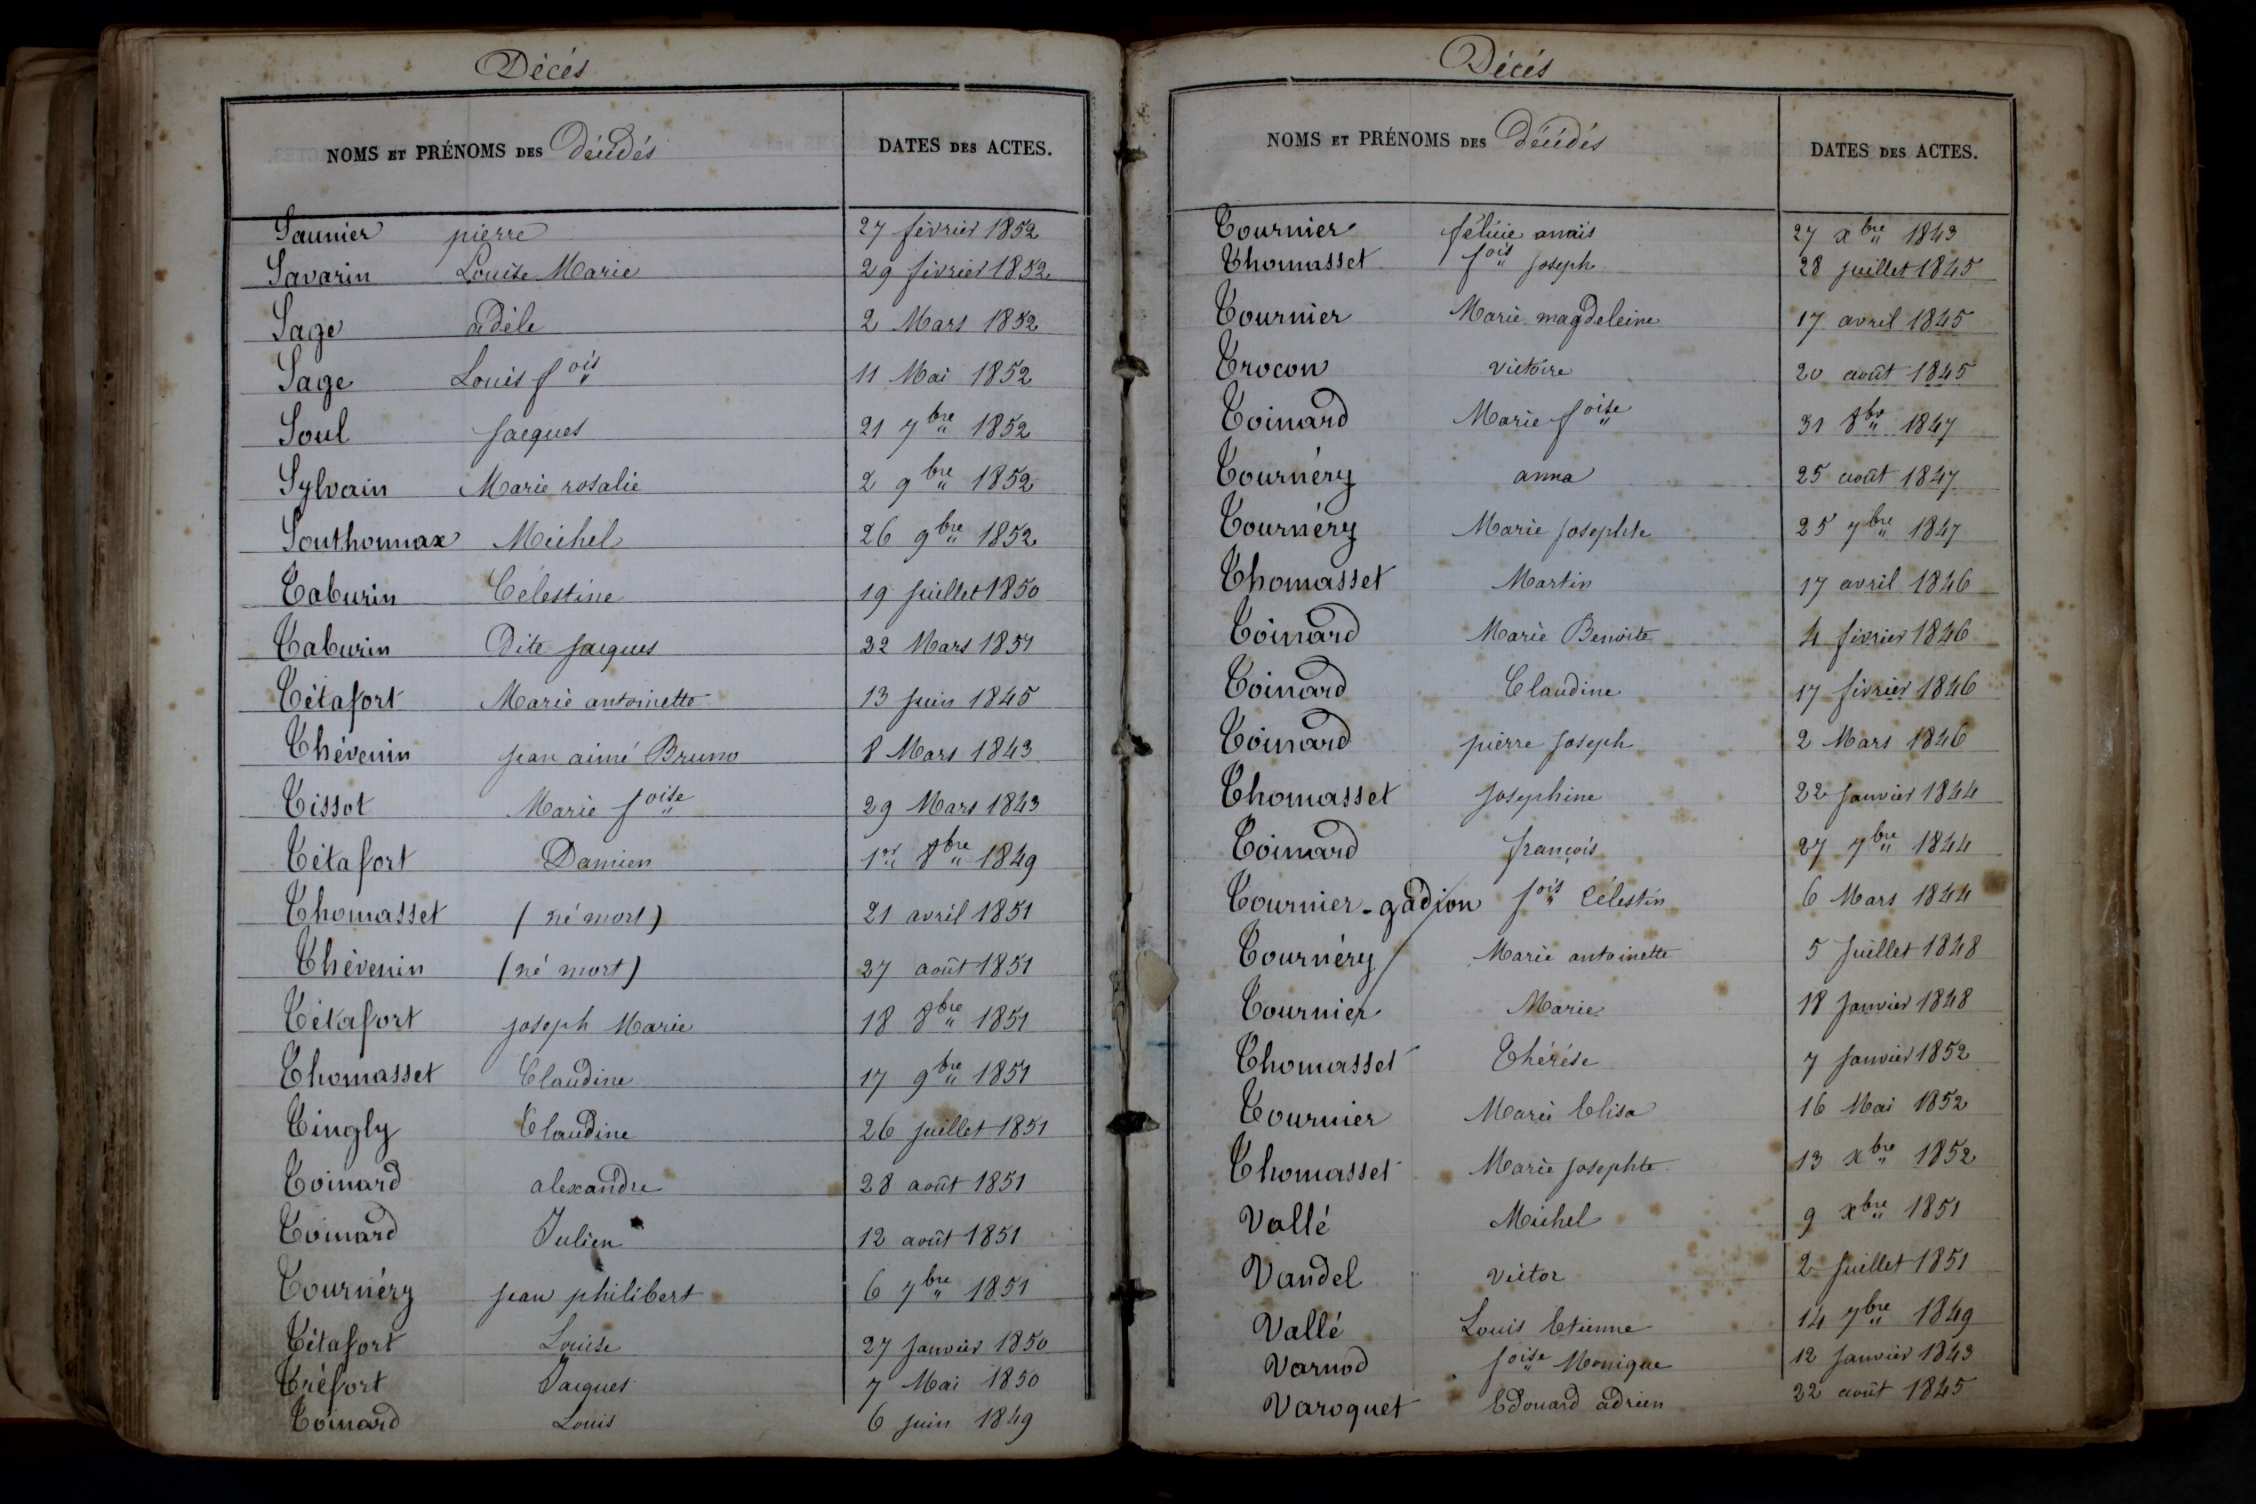 Décés
NOMS ET PRÉNOMS DES Décédés DATES DES ACTES.
Saunier pierre 27 février 1852
Savarin Louise Marie 29 février 1852
Sage adèle 2 Mars 1852
Sage Louis fois 11 Mai 1852
Soul Jacques 21 7bre 1852
Sylvain Marie rosalie 2 9bre 1852
Southonnax Michel 26 9bre 1852
Taburin Célestine 19 Juillet 1850
Taburin Dite Jacques 22 Mars 1851
Tétafort Marie antoinette 13 Juin 1845
Thévenin Jean aimé Bruno 8 Mars 1843
Tissot Marie foise 29 Mars 1843
Tétafort Damien 1er 8bre 1849
Thomasset (né mort) 21 avril 1851
Thévenin (né mort) 27 août 1851
Tétafort Joseph Marie 18 8bre 1851
Thomasset Claudine 17 9bre 1851
Tingly Claudine 26 Juillet 1851
Toinard alexandre 28 août 1851
Toinard Julien 12 août 1851
Tournéry Jean philibert 6 7bre 1851
Tétafort Louise 27 Janvier 1850
Tréfort Jacques 7 Mai 1850
Toinard Louis 6 Juin 1849
Décés
NOMS ET PRÉNOMS DES Décédés DATES DES ACTES.
Tournier félicie anais 27 xbre 1843
Thomasset fois Joseph 28 Juillet 1845
Tournier Marie magdeleine 17 avril 1845
Trocon victoire 20 août 1845
Toinard Marie foise 31 8bre 1847
Tournéry anna 25 août 1847
Tournéry Marie Josephte 25 7bre 1847
Thomasset Martin 17 avril 1846
Toinard Marie Benoite 4 février 1846
Toinard Claudine 17 février 1846
Toinard pierre Joseph 2 Mars 1846
Thomasset Josephine 22 Janvier 1844
Toinard françois 27 7bre 1844
Tournier-gadion fois Célestin 6 Mars 1844
Tournéry Marie antoinette 5 Juillet 1848
Tournier Marie 18 Janvier 1848
Thomasset Thérése 7 Janvier 1852
Tournier Marie Elisa 16 Mai 1852
Thomasset Marie Josephte 13 xbre 1852
Vallé Michel 9 xbre 1851
Vandel victor 2 Juillet 1851
Vallé Louis Etienne 14 7bre 1849
Varnod foise Monique 12 Janvier 1843
Varoquet Edouard adrien 22 août 1845